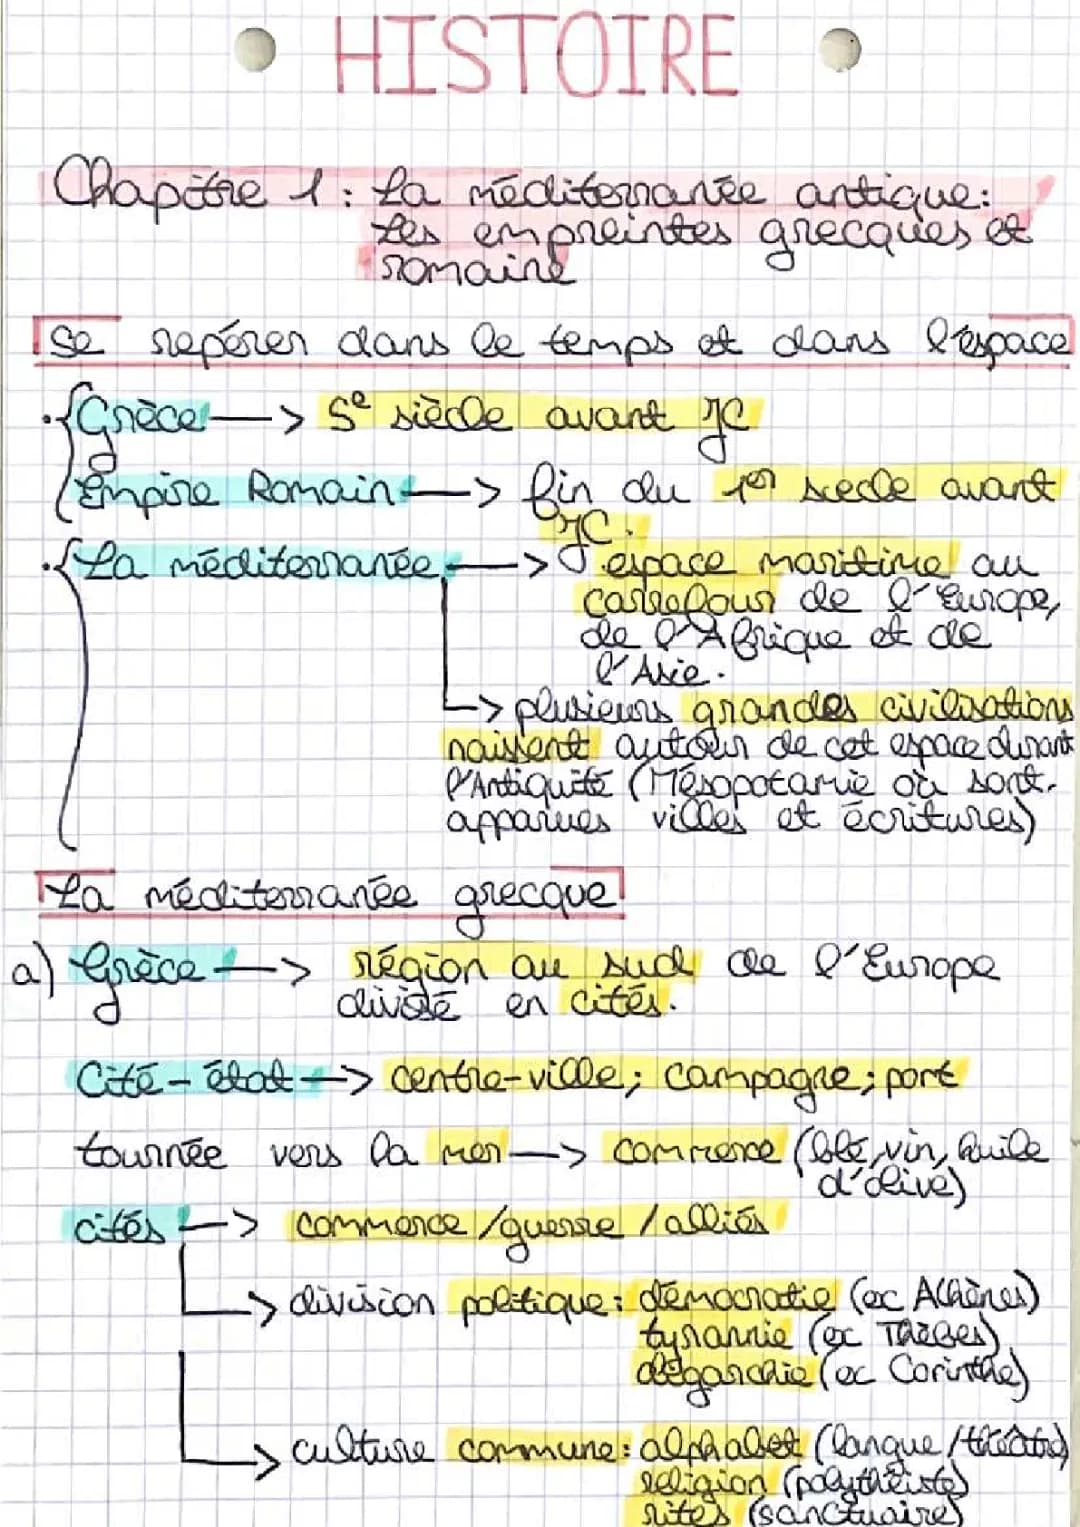 HISTOIRE
Chapitre 1 : La méditerranée antique:
Les empreintes grecques et
romaine
Se repérer dans le temps et dans l'espace
. Grèce —> 5e siècle avant JC
Empire Romain —> fin du 1er siecle avant
JC.
. La méditerranée —> espace maritime au
carrefour de l'Europe,
de l'Afrique et de
l'Asie.
-> plusieurs grandes civilisations
naissent autour de cet espace durant
l'Antiquité (Mésopotamie où sont
apparues villes et écritures)
La méditerranée grecque
a) Grèce —> région au sud de l'Europe
divisé en cités.
Cité-état —> centre-ville; campagne; port
tournée vers la mer —> commerce (blé, vin, huile
d'olive)
cités —> commerce / guerre / alliés
—> division politique: démocratie (ex Athènes)
tyrannie (ex Thèbes)
oligarchie (ex Corinthe)
—> culture commune: alphabet (langue / théâtre)
religion (polythéiste)
rites (sanctuaire)